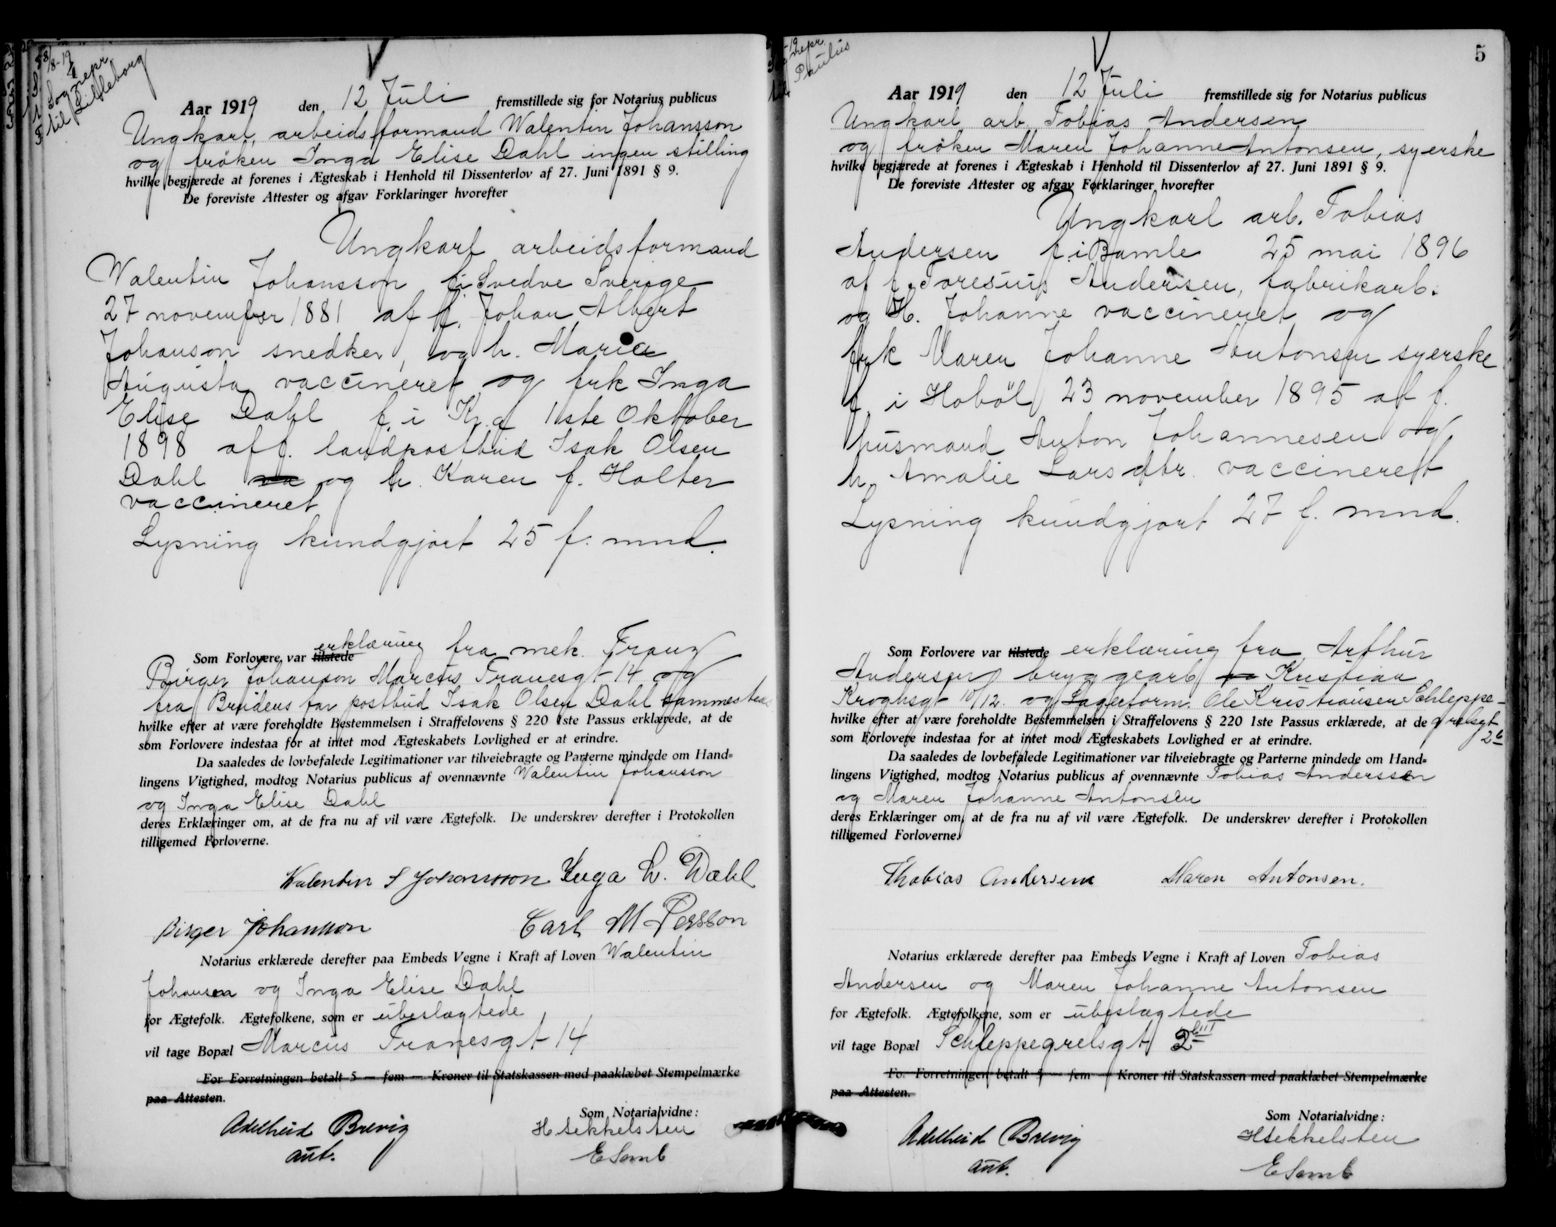 8/8-19
Sognepr
til Lilleborg
Aar 1919 den 12 Juli fremstillede sig for Notarius publicus
Ungkarl, arbeidsformand Walentin Johansson
og frøken Inga Elise Dahl ingen stilling
hvilke begjærede at forenes i Ægteskab i Henhold til Dissenterlov af 27. Juni 1891 § 9.
De foreviste Attester og afgav Forklaringer hvorefter
Ungkarl arbeidsformand
Walentin Johansson f. i Svedve Sverige
27 november 1881 af f. Johan Albert
Johanson snedker, og h. Maria
Augusta vaccineret og frk Inga
Elise Dahl f. i Kr.a 11ste Oktober
1898 af f. landpostbud Isak Olsen
Dahl og h. Karen f. Holter
vaccineret
Lysning kundgjort 25 f. mnd.
erklæring fra mek. Franz
Som Forlovere var tilstede
Birger Johanson Marcus Tranesgt 14 og
fra Brudens far postbud Isak Olsen Dahl sammesteds
hvilke efter at være foreholdte Bestemmelsen i Straffelovens § 220 1ste Passus erklærede, at de
som Forlovere indestaa for at intet mod Ægteskabets Lovlighed er at erindre.
Da saaledes de lovbefalede Legitimationer var tilveiebragte og Parterne mindede om Hand=
lingens Vigtighed, modtog Notarius publicus af ovennævnte Walentin Johansson
og Inga Elise Dahl
deres Erklæringer om, at de fra nu af vil være Ægtefolk. De underskrev derefter i Protokollen
tilligemed Forloverne.
Walentin S Johansson Inga L. Dahl
Birger Johansson Carl M Persson
Notarius erklærede derefter paa Embeds Vegne i Kraft af Loven Walentin
Johansen og Inga Elise Dahl
for Ægtefolk. Ægtefolkene, som er ubeslægtede
vil tage Bopæl Marcus Tranesgt 14
For Forretningen betalt 5 — fem — Kroner til Statskassen med paaklæbet Stempelmærke
paa Attesten.
Adelheid Brevig
aut.
Som Notarialvidne:
H Sekkelsten
E Lamb
5
-19
Sognepr
Paulus
Aar 1919 den 12 Juli fremstillede sig for Notarius publicus
Ungkarl arb. Tobias Andersen
og frøken Maren Johanne Antonsen, syerske
hvilke begjærede at forenes i Ægteskab i Henhold til Dissenterlov af 27. Juni 1891 § 9.
De foreviste Attester og afgav Forklaringer hvorefter
Ungkarl arb. Tobias
Andersen f. i Bamle 25 mai 1896
af f. Andersen, fabrikarb.
og H. Johanne vaccineret og
frk Maren Johanne Antonsen syerske
f. i Hobøl 23 november 1895 af f.
husmand Anton Johannesen og
h. Amalie Larsdtr. vaccineret
Lysning kundgjort 27 f. mnd.
Som Forlovere var tilstede erklæring fra Arthur
Andersen bryggearb Kristian
Kroghsgt 10/12. og Lagerform. Ole Kristiansen Schleppe-
grelsgt 26
hvilke efter at være foreholdte Bestemmelsen i Straffelovens § 220 1ste Passus erklærede, at de
som Forlovere indestaa for at intet mod Ægteskabets Lovlighed er at erindre.
Da saaledes de lovbefalede Legitimationer var tilveiebragte og Parterne mindede om Hand=
lingens Vigtighed, modtog Notarius publicus af ovennævnte Tobias Anderssen
og Maren Johanne Antonsen
deres Erklæringer om, at de fra nu af vil være Ægtefolk. De underskrev derefter i Protokollen
tilligemed Forloverne.
Thobias Andersen Maren Antonsen.
Notarius erklærede derefter paa Embeds Vegne i Kraft af Loven Tobias
Andersen og Maren Johanne Antonsen
for Ægtefolk. Ægtefolkene, som er ubeslægtede
vil tage Bopæl Schleppegrelsgt
For Forretningen betalt 5 — fem — Kroner til Statskassen med paaklæbet Stempelmærke
paa Attesten.
Adelheid Brevig
aut.
Som Notarialvidne:
H Sekkelsten
E Lamb